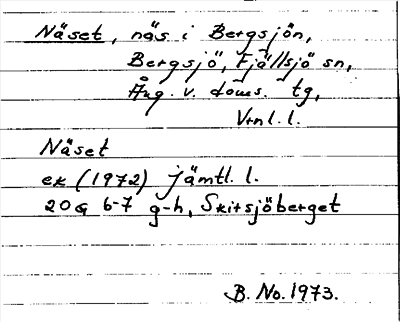 Näset, näs i Bergsjön,
Bergsjö, Fjällsjö sn,
Ång. v. doms. tg,
Vrnl. l.
Näset
ek (1972) Jämtl. l.
20G 6-7 g-h, Skirsjöberget
B. No. 1973.